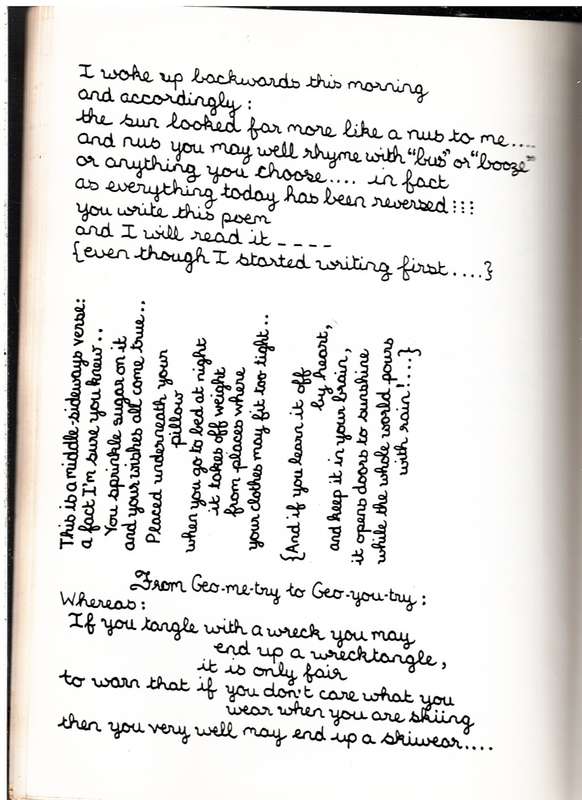 I woke up backwards this morning
and accordingly:
the sun looked far more like a nus to me....
and nus you may well rhyme with "bus" or "booze"
or anything you choose.... in fact
as everything today has been reversed:::
you write this poem
and I will read it _ _ _ _
{even though I started writing first....}
This is a middle-sideways verse:
a fact I'm sure you knew..
You sprinkle sugar on it
and your wishes all come true...
Placed underneath your
pillow
when you go to bed at night
it takes off weight
from places where
your clothes may fit too tight...
{And if you learn it off
by heart,
and keep it in your brain,
it opens doors to sunshine
while the whole world pours
with rain!....}
From Geo-me-try to Geo-you-try:
Whereas:
If you tangle with a wreck you may
end up a wrecktangle,
it is only fair
to warn that if you don't care what you
wear when you are skiing
then you very well may end up a skiwear....